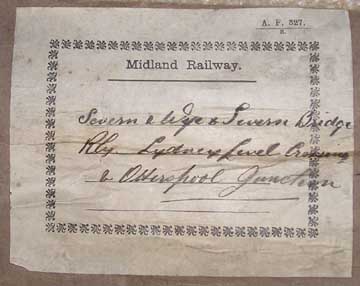 A. F. 327.
Midland Railway.
Severn & Wye & Severn Bridge
Rly Lydney Level Crossing
& Otterspool Junction